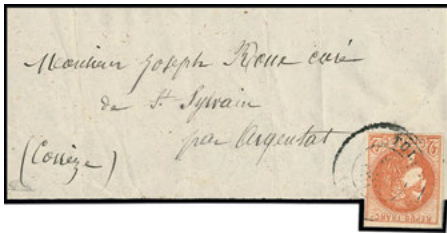 Monsieur Joseph Roux curé
de St Sylvain
par Argentat
(Corrèze)
REPUB. FRANC.